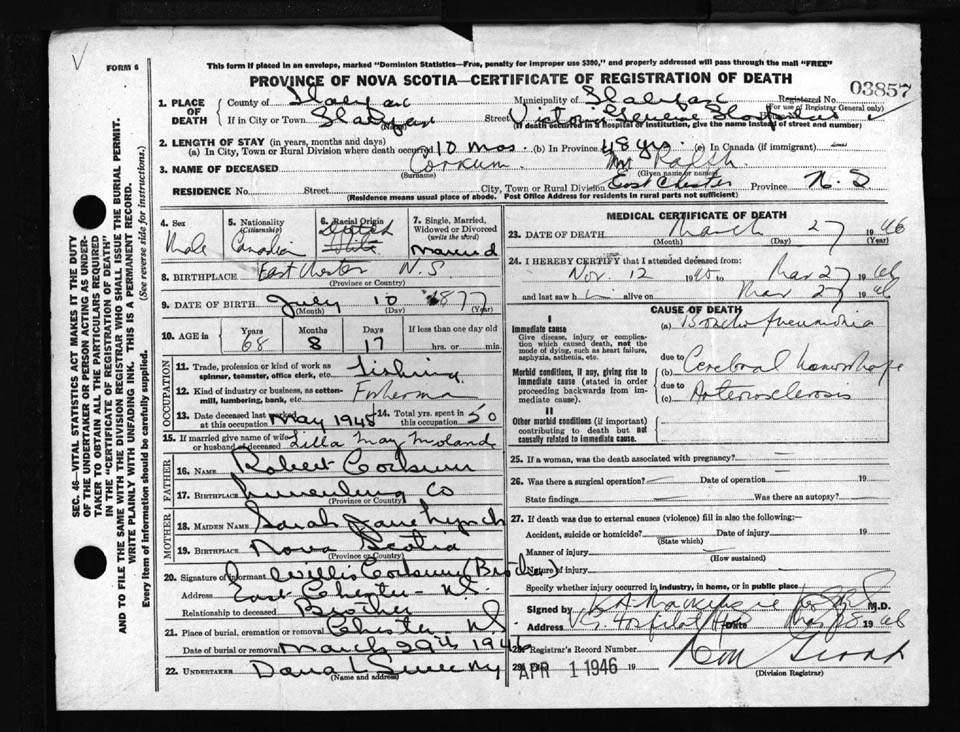 V
FORM 6
This form if placed in an envelope, marked "Dominion Statistics—Free, penalty for improper use $300," and properly addressed will pass through the mail "FREE"
PROVINCE OF NOVA SCOTIA—CERTIFICATE OF REGISTRATION OF DEATH
03857
1. PLACE OF DEATH
County of Halifax Municipality of Halifax Registered No.
(For use of Registrar General only)
If in City or Town Halifax Street Victoria General Hospital
(Name) (If death occurred in a hospital or institution, give the name instead of street and number)
2. LENGTH OF STAY (in years, months and days)
(a) In City, Town or Rural Division where death occurred 10 mos. (b) In Province 48 yrs. (c) In Canada (if immigrant) —
3. NAME OF DECEASED Corkum Mr Ralph
(Surname) (Given name or names)
RESIDENCE No. Street City, Town or Rural Division East Chester Province N. S
(Residence means usual place of abode. Post Office Address for residents in rural parts not sufficient)
SEC. 46—VITAL STATISTICS ACT MAKES IT THE DUTY
OF THE UNDERTAKER OR PERSON ACTING AS UNDERTAKER
TO OBTAIN ALL THE PARTICULARS REQUIRED
IN THE "CERTIFICATE OF REGISTRATION OF DEATH"
AND TO FILE THE SAME WITH THE DIVISION REGISTRAR WHO SHALL ISSUE THE BURIAL PERMIT.
WRITE PLAINLY WITH UNFADING INK. THIS IS A PERMANENT RECORD.
Every item of information should be carefully supplied. (See reverse side for instructions.)
4. Sex Male
5. Nationality (Citizenship) Canadian
6. Racial Origin Dutch White
7. Single, Married, Widowed or Divorced (write the word) Married
8. BIRTHPLACE East Chester N. S
(Province or Country)
9. DATE OF BIRTH July 10 1877
(Month) (Day) (Year)
10. AGE in Years 68 Months 8 Days 17 If less than one day old hrs. or min.
OCCUPATION
11. Trade, profession or kind of work as spinner, teamster, office clerk, etc. fishing
12. Kind of industry or business, as cotton-mill, lumbering, bank, etc. Fisherman
13. Date deceased last worked at this occupation May 1945 14. Total yrs. spent in this occupation 50
15. If married give name of wife or husband of deceased Lilla May Moland
FATHER
16. NAME Robert Corkum
17. BIRTHPLACE Lunenburg Co
(Province or Country)
MOTHER
18. MAIDEN NAME Sarah Jane Lynch
19. BIRTHPLACE Nova Scotia
(Province or Country)
20. Signature of informant Willis Corkum (Brother)
Address East Chester N.S.
Relationship to deceased Brother
21. Place of burial, cremation or removal Chester N.S
Date of burial or removal March 29th 1946
22. UNDERTAKER Dana L Sweeny
(Name and address)
MEDICAL CERTIFICATE OF DEATH
23. DATE OF DEATH March 27 1946
(Month) (Day) (Year)
24. I HEREBY CERTIFY that I attended deceased from:
Nov. 12 1945 to Mar 27 1946
and last saw him alive on Mar 27 1946
CAUSE OF DEATH
I
Immediate cause
Give disease, injury or complication which caused death, not the mode of dying, such as heart failure, asphyxia, asthenia, etc.
(a) Broncho pneumonia
due to
Morbid conditions, if any, giving rise to immediate cause (stated in order proceeding backwards from immediate cause).
(b) Cerebral hemorrhage
due to
(c) Arteriosclerosis
II
Other morbid conditions (if important) contributing to death but not causally related to immediate cause.
25. If a woman, was the death associated with pregnancy? —
26. Was there a surgical operation? — Date of operation 19
State findings Was there an autopsy?
27. If death was due to external causes (violence) fill in also the following:—
Accident, suicide or homicide? Date of injury 19
(State which)
Manner of injury
(How sustained)
Nature of injury
Specify whether injury occurred in industry, in home, or in public place
Signed by K A Mackenzie M.D.
Address V. G. Hospital Date Mar 28 1946
28. Registrar's Record Number
29. APR 1 1946 19
(Division Registrar)